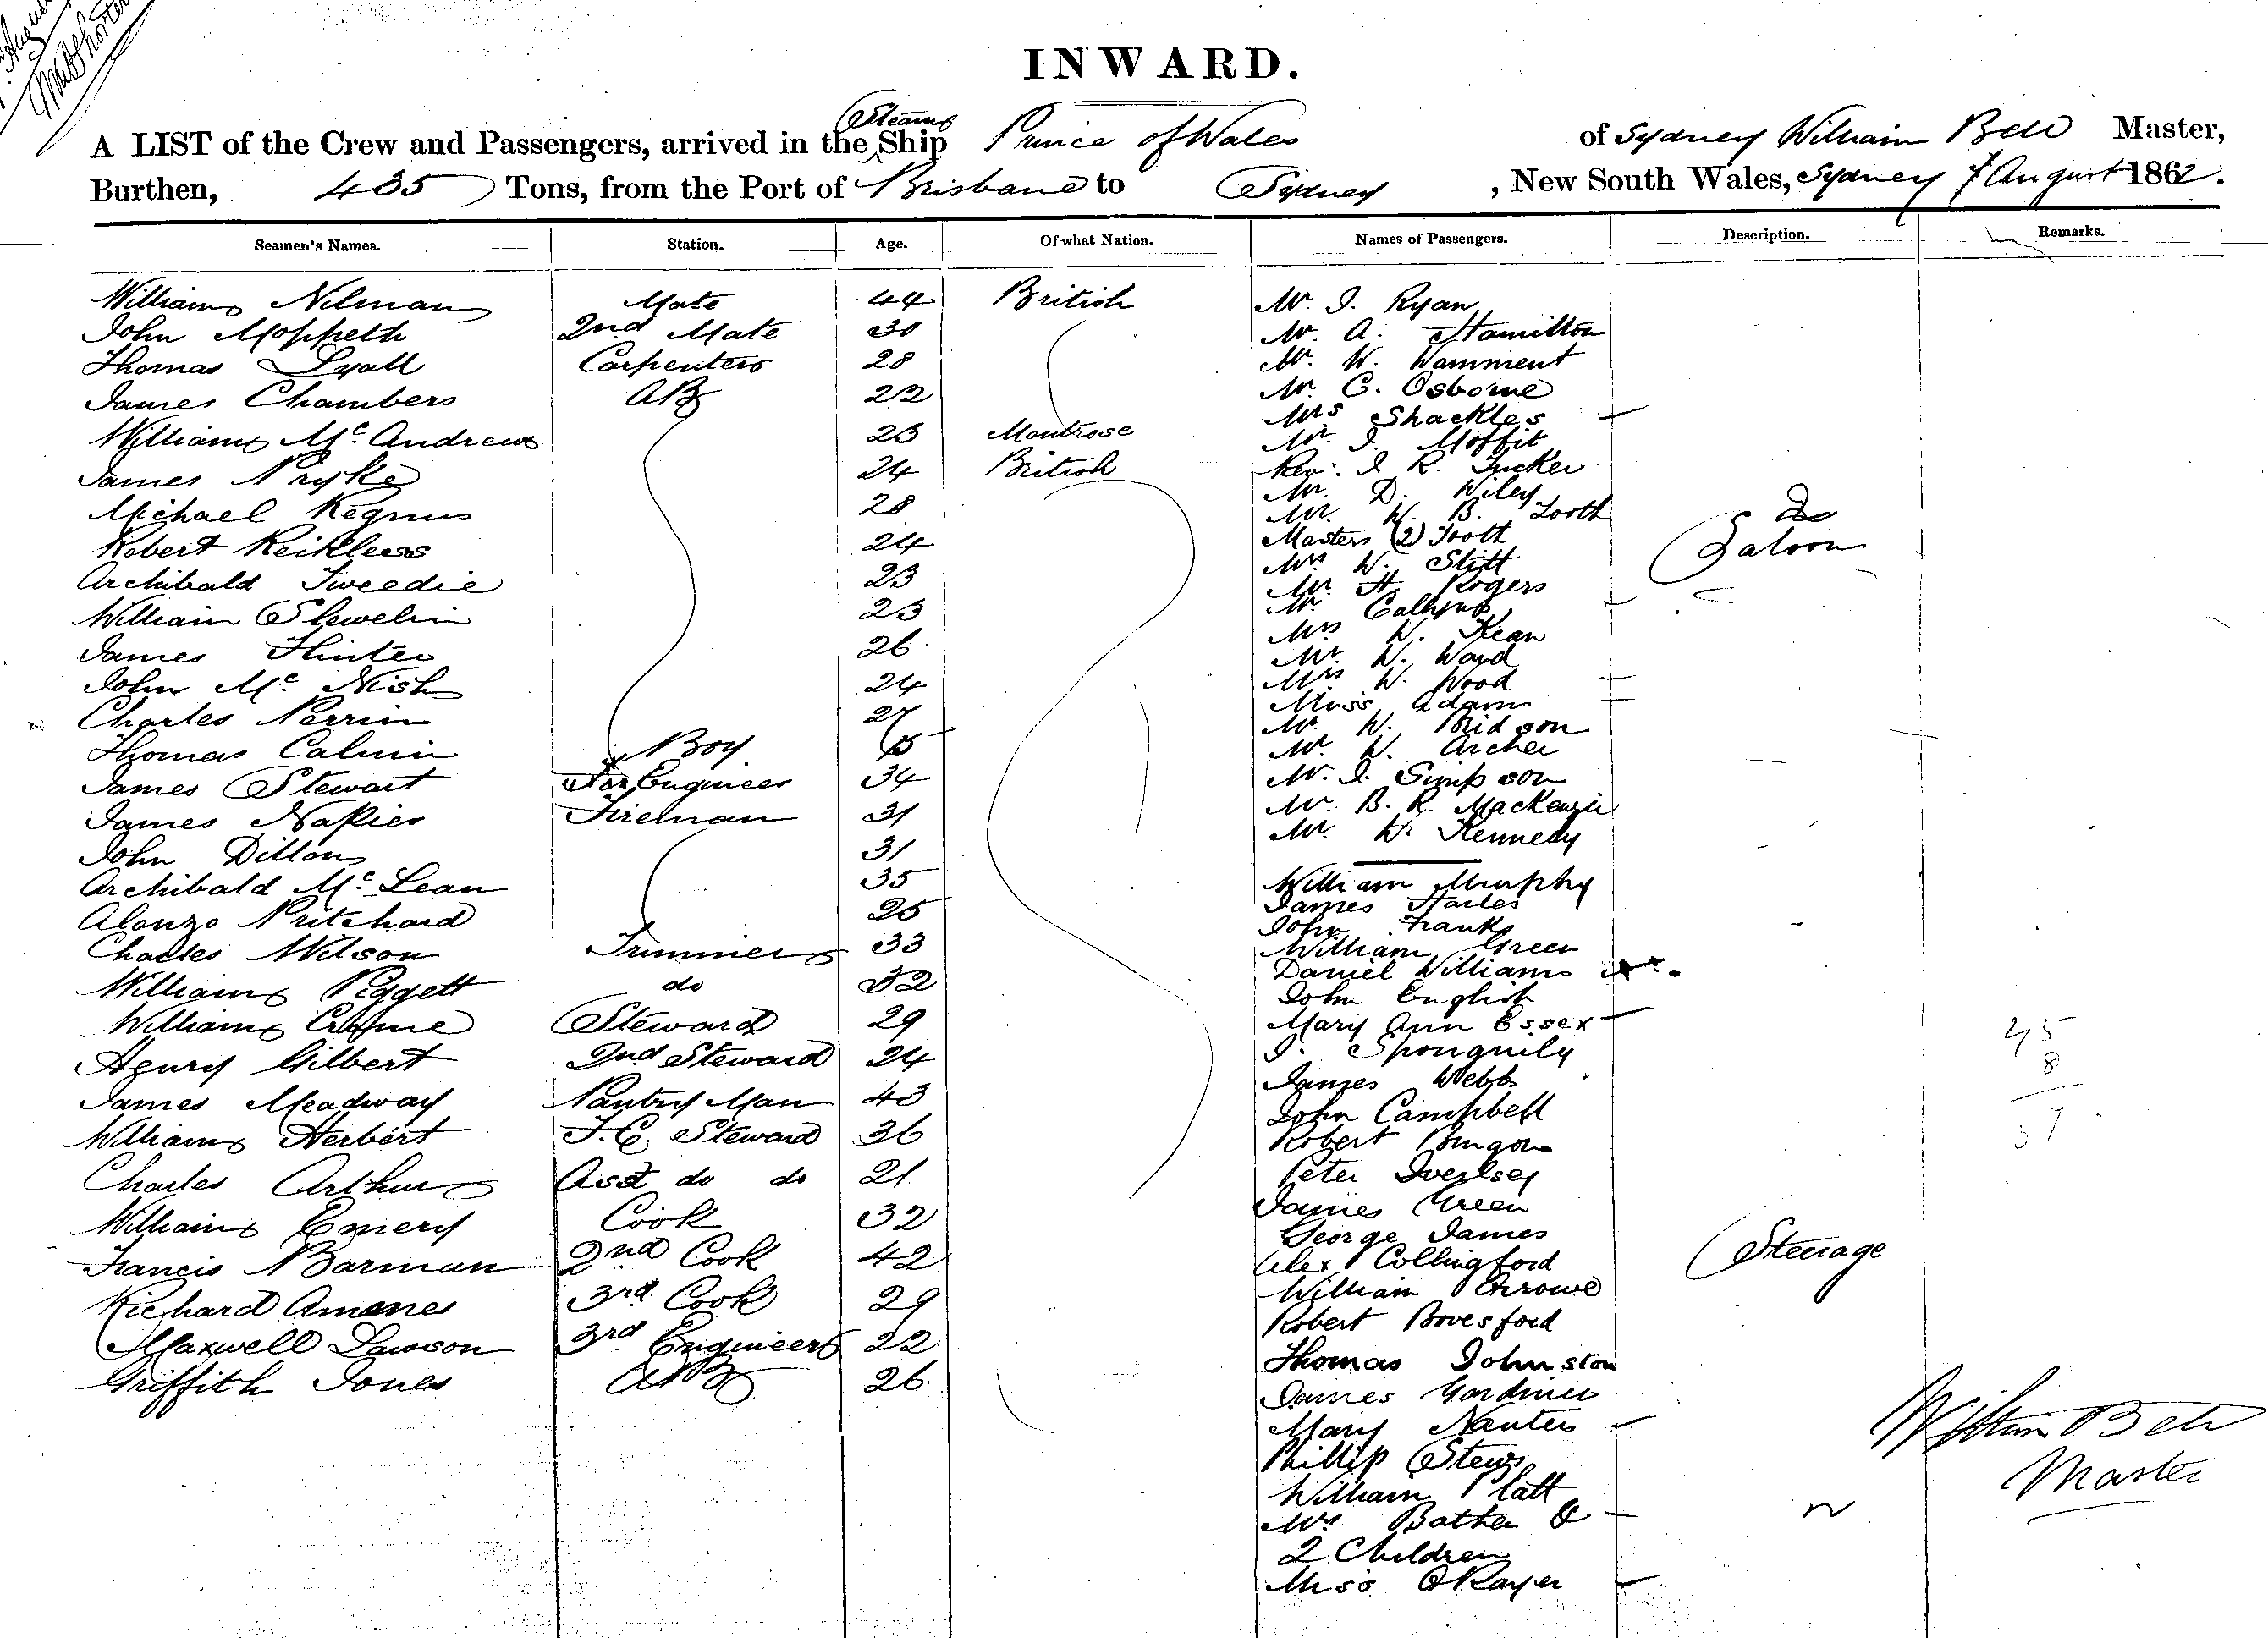 INWARD.
A LIST of the Crew and Passengers, arrived in the Steam Ship Prince of Wales of Sydney William Bell Master,
Burthen, 435 Tons, from the Port of Brisbane to Sydney, New South Wales, Sydney 7 August 1862.
Seamen's Names. Station. Age. Of what Nation. Names of Passengers. Description. Remarks.
William Nilman Mate 44 British
John Moppeth 2nd Mate 30
Thomas Lyall Carpenter 28
James Chambers AB 22
William Mc Andrew 23 Montrose
James Pryke 24 British
Michael Regnus 28
Robert Reikless 24
Archibald Tweedie 23
William Slewelin 23
James Hunter 26
John Mc Nish 24
Charles Perrin 27
Thomas Calmin Boy 15
James Stewart Engineer 34
James Napier Fireman 31
John Dillon 31
Archibald Mc Lean 35
Alonzo Pritchard 25
Charles Wilson Trimmer 33
William Piggett do 32
William Crome Steward 29
Henry Gilbert 2nd Steward 24
James Meadway Pantry Man 43
William Herbert F.C. Steward 36
Charles Arthur Asst do do 21
William Emery Cook 32
Francis Barman 2nd Cook 42
Richard Amenes 3rd Cook 29
Maxwell Lawson 3rd Engineer 22
Griffith Jones AB 26
Mr. J. Ryan
Mr. A. Hamilton
Mr. W. Wamment
Mr. C. Osborne
Mrs Shackles
Mr. J. Moffit
Rev. J. R. Tucker
Mr. D. Wiley
Mr. W. B. Tooth
Masters (2) Tooth
Mrs W. Stitt
Mr. H. Rogers
Mr
Mrs W. Kean
Mr. W. Ward
Mrs W. Wood
Miss Adams
Mr. W. Bridson
Mr. W. Archer
Mr. J. Simpson
Mr. B. R. MacKenzie
Mr. W. Kennedy
Saloon
William Murphy
James Harles
John Franks
William Green
Daniel Williams
John English
Mary Ann Essex
J. Sponguily
James Webb
John Campbell
Robert
Peter Iverlsey
James Green
George James
Alex Collingford
William
Robert Bovesford
Thomas Johnston
James Gardiner
Mary Nanters
Phillip
William Platt
Mrs Bather &
2 Children
Miss
Steerage
45
8
37
William Bell
Master